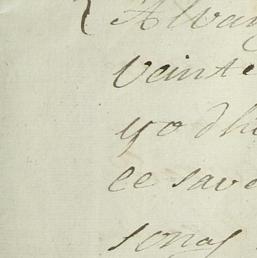 Alvar
veinte
yo dh
ce save
sonas